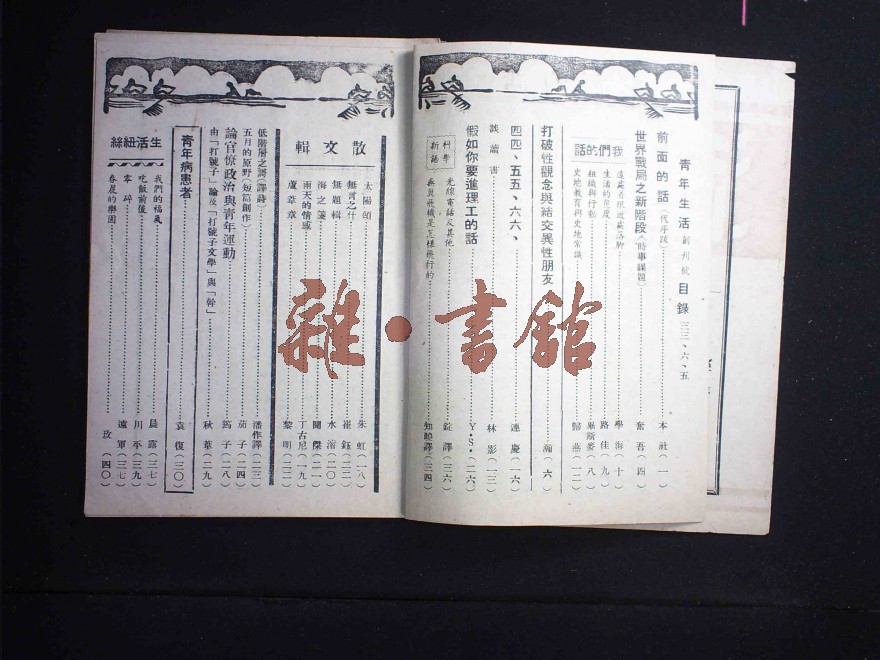 青年生活 創刊號 目錄 三三、六、五
前面的話(代序跋)……本社(一)
世界戰局之新階段(時事課題)……奮吾(四)
我們的話
遠處着眼近處落脚……學海(十)
生活的態度……路佳(九)
組織與行動……(八)
史地教育與史地常識……歸燕(一二)
打破性觀念與結交異性朋友……瀚(六)
四四、五五、六六、……連慶(一六)
談讀書……林影(一三)
假如你要進理工的話……Y·S·(二六)
科學新語
光線電話及其他……錠譯(三六)
無翼飛機是怎樣飛行的……知曉譯(三四)
散文輯
太陽頌……朱虹(一八)
無言之什……崔鈺(二二)
無題輯……水溶(二〇)
海之箋……聞傑(二一)
雨天的情感……丁古尼(一九)
蘆葦章……黎明(二二)
低階層之謌(譯詩)……潘作譯(二三)
五月的原野(短篇創作)……茄子(二四)
論官僚政治與青年運動……筠子(二八)
由「打號子」論及「打號子文學」與「幹」……秋葦(二九)
青年病患者……袁復(三〇)
生活紐絲
我們的福氣……晨露(三七)
吃飯前後……川平(三九)
零碎……遠軍(三七)
春晨的樂園……玫(四〇)
雜·書舘